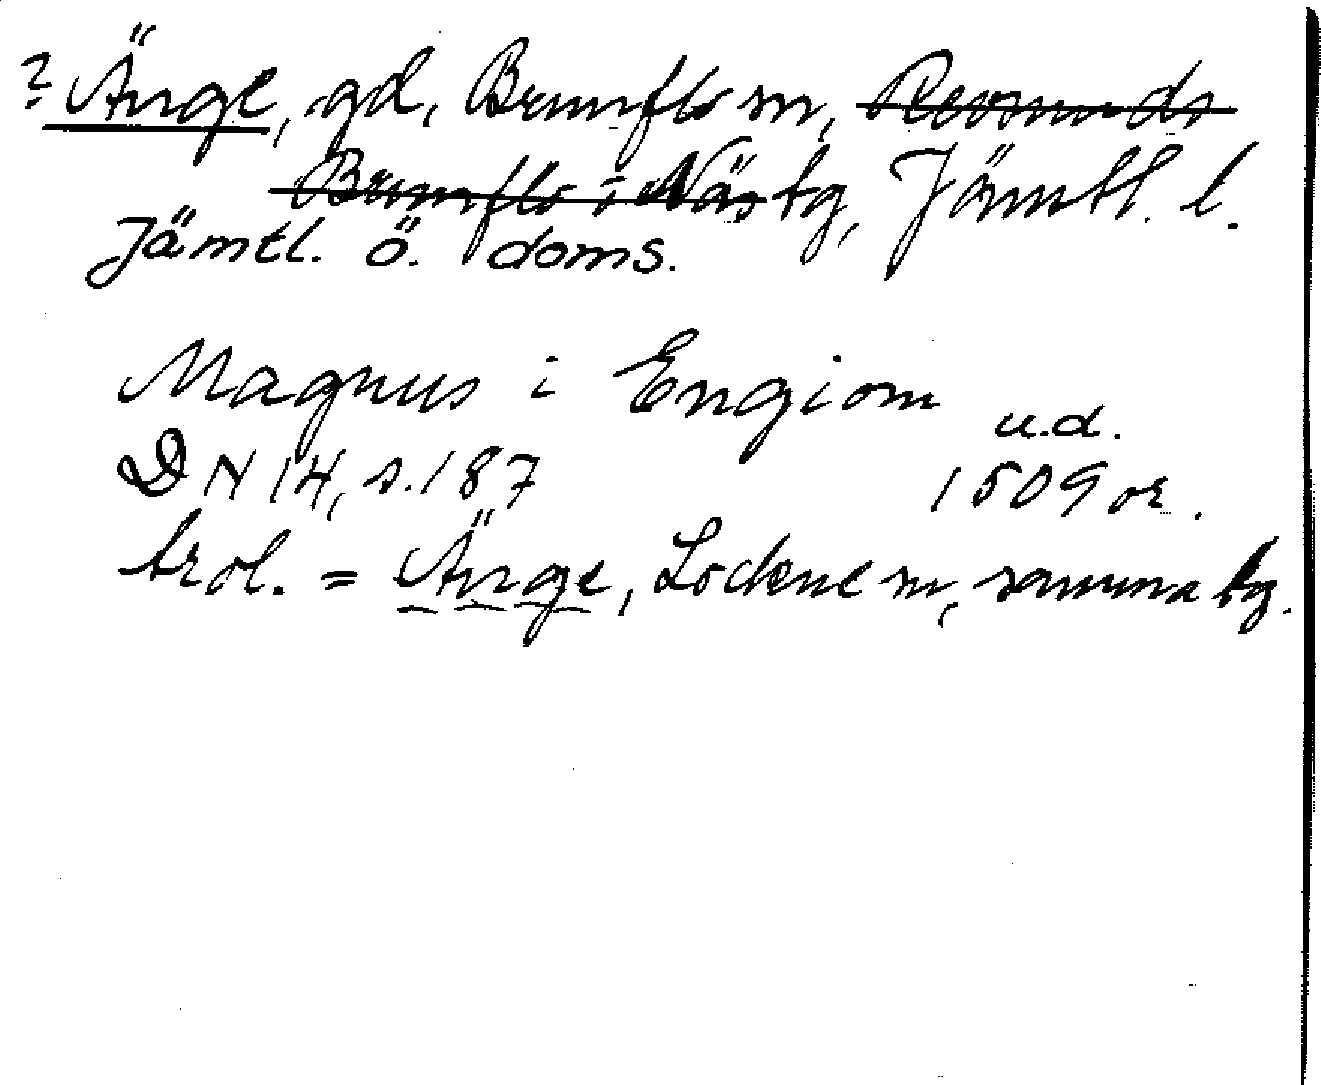 ? Änge, gd, Brunflo sn, Revsunds
Brunflo i Näs tg, Jämtl. l.
Jämtl. ö. doms.
Magnus i Engiom
u.d.
DN 14, s. 187 1509 or.
trol. = Änge, Lockne sn, samma tg.